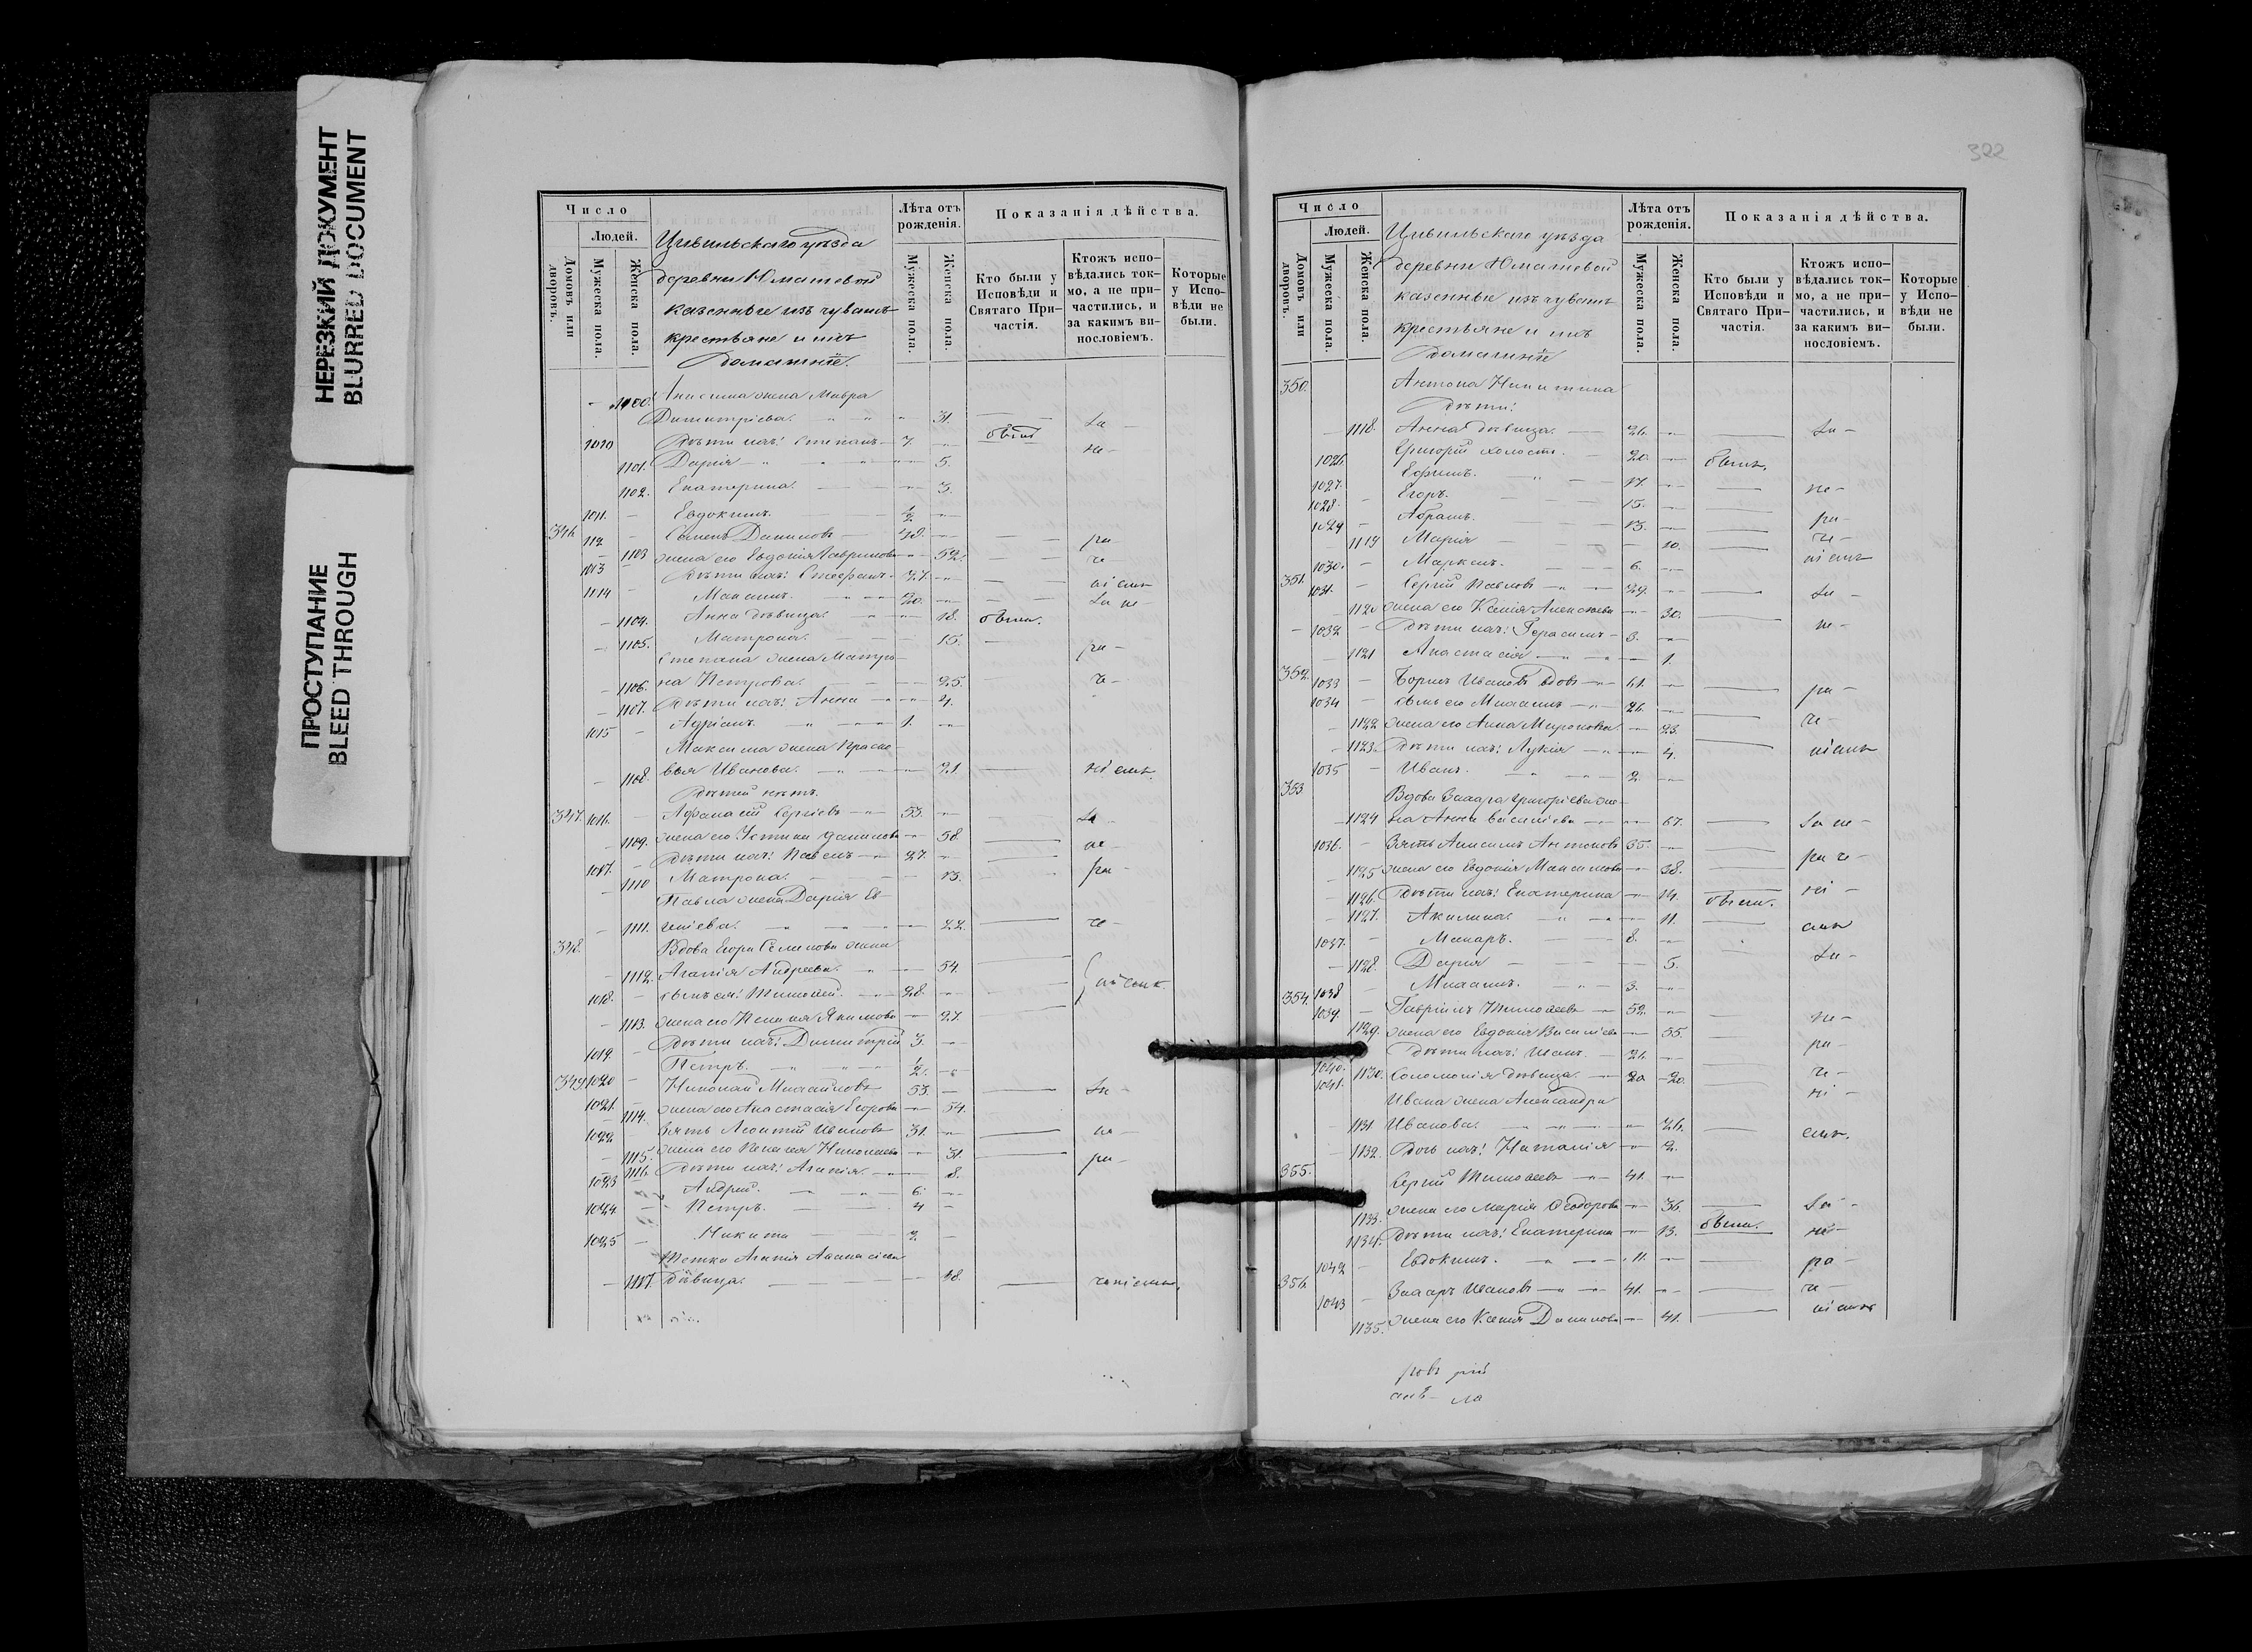 НЕРЕЗКИЙ ДОКУМЕНТ
BLURRED DOCUMENT
ПРОСТУПАНИЕ
BLEED THROUGH
Число
Людей.
Домовъ или дворовъ.
Мужеска пола.
Женска пола.
Цивильскаго уѣзда
деревни Юматевой
казенные изъ чувашъ
крестьяне и ихъ
домашніе.
Лѣта отъ рожденія.
Мужеска пола.
Женска пола.
Показанія дѣйства.
Кто были у Исповѣди и Святаго Причастія.
Ктожъ исповѣдались токмо, а не причастились, и за какимъ винословіемъ.
Которые у Исповѣди не были.
1100. Анисима жена Мавра
Димитріева. 31.
1010 Дѣти ихъ: Степанъ 7. были
1101. Дарія 5.
1102. Екатерина. 3.
1011. Евдокимъ. 1/2
346 112 Семенъ Даниловъ 48.
1103 жена его Евдокія Гаврилова 52.
1013 Дѣти ихъ: Стефанъ. 27.
1014 Максимъ. 20.
1104. Анна дѣвица. 18. были.
1105. Матрона. 15.
Степана жена Матро-
1106. на Петрова. 25.
1107. Дѣти ихъ: Анна 4.
1015 Адріанъ. 1.
Максима жена Праско-
1108. вья Иванова. 21.
Дѣтей нѣтъ.
347. 1016. Афанасій Сергіевъ 53.
1109. жена его Устина Данилова 58.
1017. Дѣти ихъ: Павелъ 27.
1110 Матрона. 13.
Павла жена Дарія Ев-
1111. геніева. 22.
348. Вдова Егора Семенова жена
1112. Агапія Андреева. 54.
1018. сынъ ея: Тимоѳей. 28.
1113. жена его Ксенія Якимова 27.
1019. Дѣти ихъ: Димитрій 3.
Петръ. 1/2.
349 1020 Николай Михайловъ 53.
1021. 1114. жена его Анастасія Егорова 54.
1022 зять Леонтій Ивановъ 31.
1115. жена его Ксенія Николаева 31.
1023 1116. Дѣти ихъ: Агапія. 8.
Андрей. 6.
1024 Петръ. 4
1025 Никита 2.
Тетка Агапія Аѳанасіева
1117. дѣвица. 18.
322
Число
Людей.
Домовъ или дворовъ.
Мужеска пола.
Женска пола.
Цивильскаго уѣзда
деревни Юматевой
казенные изъ чувашъ
крестьяне и ихъ
домашніе
Лѣта отъ рожденія.
Мужеска пола.
Женска пола.
Показанія дѣйства.
Кто были у Исповѣди и Святаго Причастія.
Ктожъ исповѣдались токмо, а не причастились, и за какимъ винословіемъ.
Которые у Исповѣди не были.
350. Антона Никитина
дѣти:
1118. Анна дѣвица. 26.
1026. Григорій холостъ. 20. были.
1027. Ефимъ. 17.
1028. Егоръ. 15.
1029 Абрамъ. 13.
1119 Марія 10.
1030. Маркелъ. 6.
351. 1031. Сергій Павловъ 29.
1120 жена его Ксенія Алексѣева 30.
1032 Дѣти ихъ: Герасимъ 3.
1121 Анастасія 1.
352. 1033 Борисъ Ивановъ вдовъ 61.
1034 сынъ его Михаилъ 26.
1122 жена его Анна Миронова 23.
1123. Дѣти ихъ: Лукія 4.
1035 Иванъ. 2.
353 Вдова Захара Григорьева же-
1124 на Анна Васильева 67.
1036. Зять Анисимъ Антоновъ 35.
1125 жена его Евдокія Максимова 38.
1126. Дѣти ихъ: Екатерина 14. были.
1127. Акилина. 11.
1037. Макаръ. 8.
1128. Дарія 5.
1038 Михаилъ. 3.
354. 1039. Гавріилъ Тимоѳеевъ 52.
1129. жена его Евдокія Васильева 55.
1040. Дѣти ихъ: Иванъ. 26.
1041. 1130. Соломонія дѣвица. 20 20.
Ивана жена Александра
1131 Иванова. 26.
1132. Дочь ихъ: Наталія 2.
355. Сергій Тимоѳеевъ 41.
1133. жена его Марія Ѳеодорова 36.
1134. Дѣти ихъ: Екатерина 13. были.
1042 Евдокимъ. 11.
356 1043 Захаръ Ивановъ 41.
1135. жена его Ксенія Данилова 41.